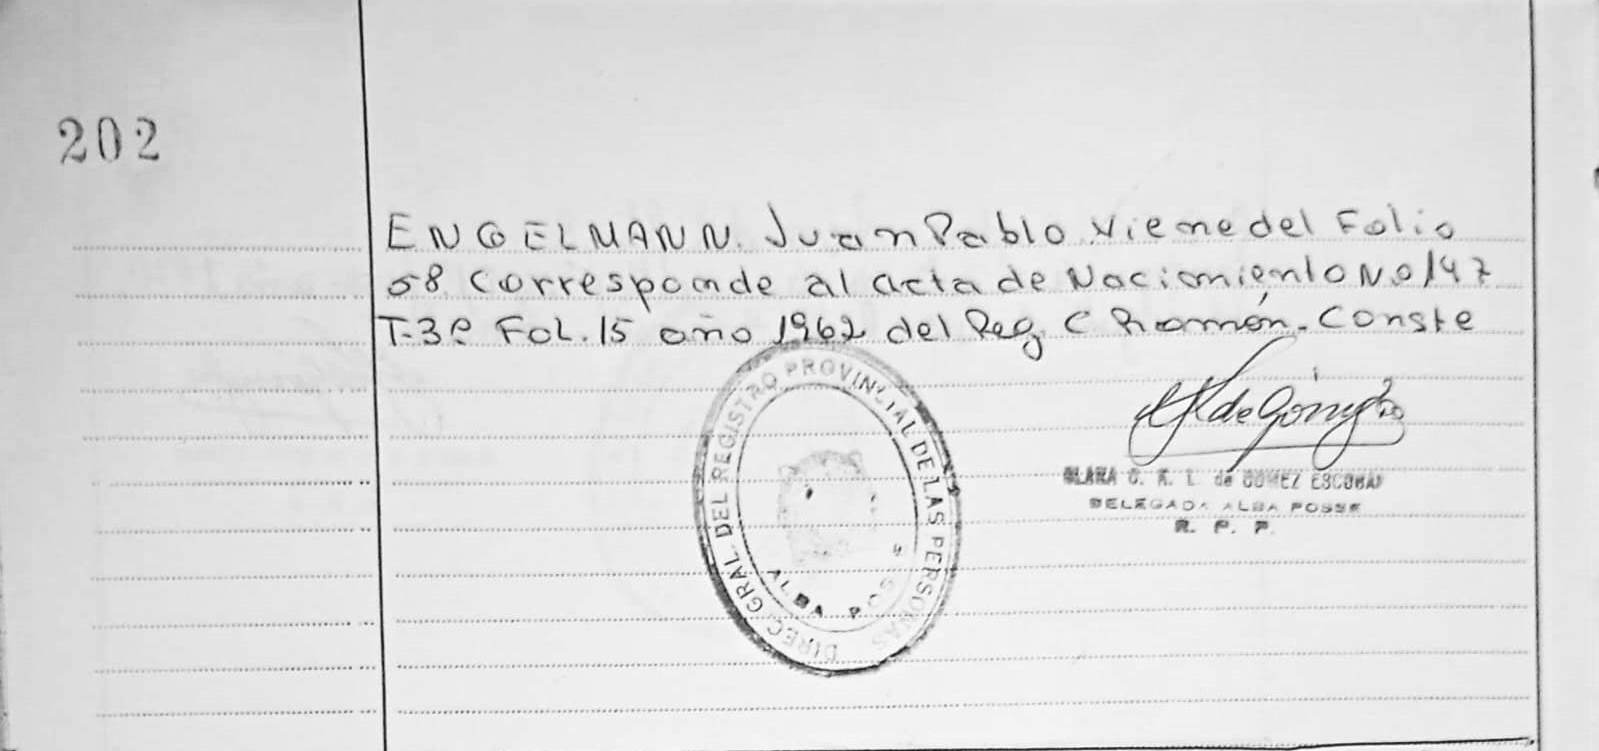 202
ENGELMANN. Juan Pablo Viene del Folio
58 Corresponde al acta de Nacimiento No 147
T-3º FOL. 15 año 1962 del Reg. C Ramón. Conste
DIREC. GRAL. DEL REGISTRO PROVINCIAL DE LAS PERSONAS
ALBA POSSE
CLARA de GOMEZ ESCOBAR
DELEGADA ALBA POSSE
R. P. P.